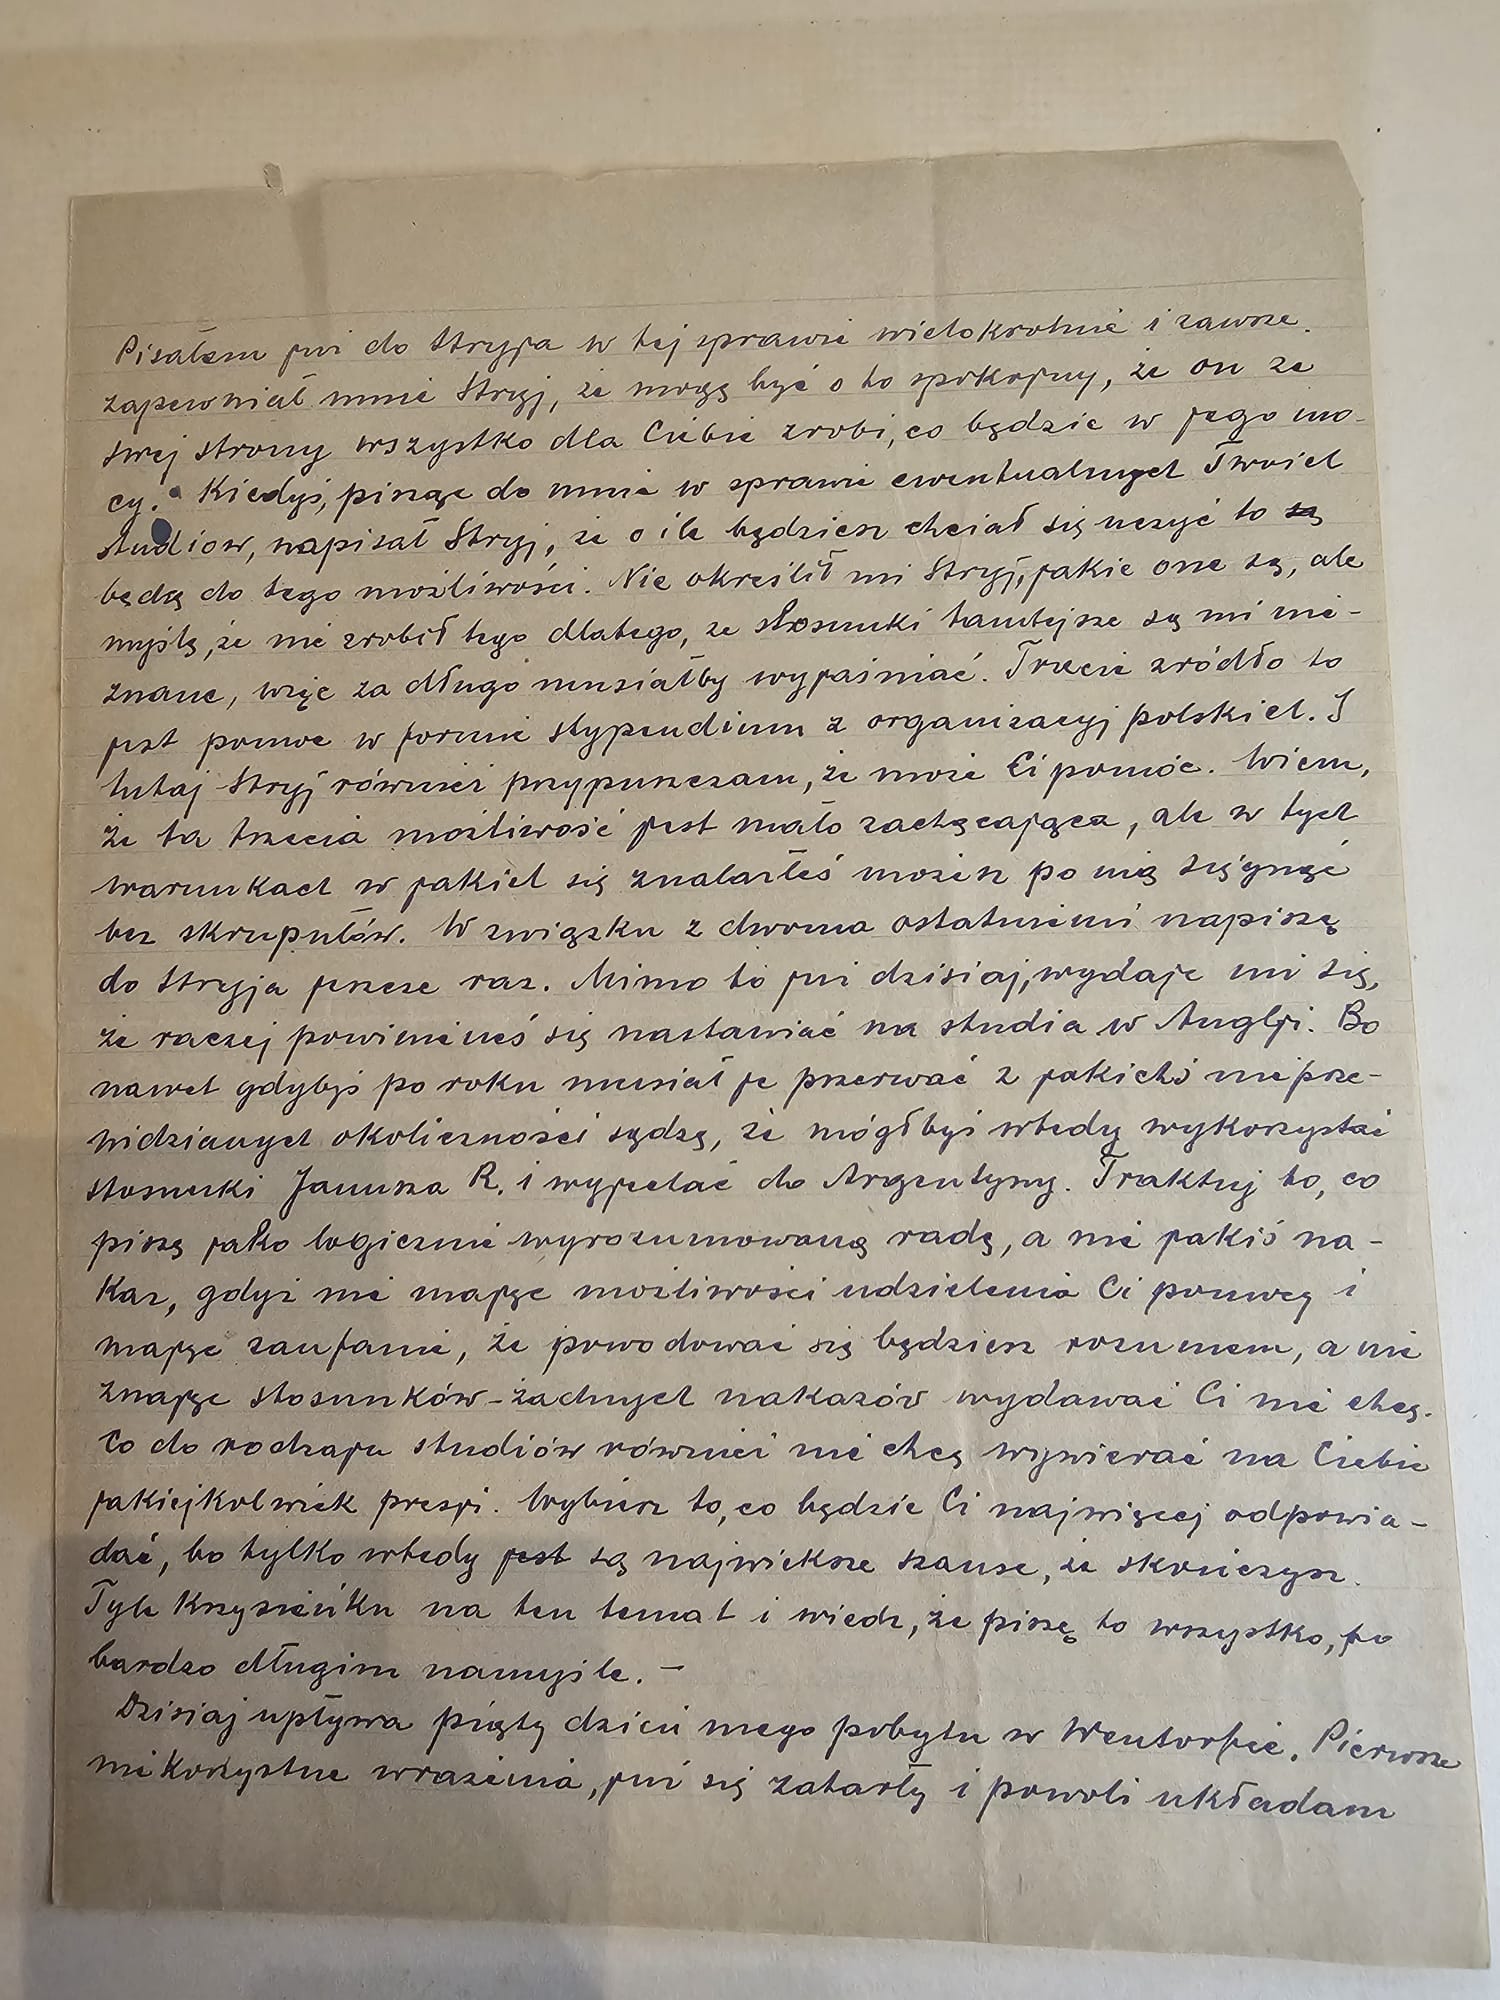 Pisałem już do Stryja w tej sprawie wielokrotnie i zawsze
zapewniał mnie Stryj, że mogę być o to spokojny, że on ze
swej strony wszystko dla Ciebie zrobi, co będzie w jego mo-
cy. Kiedyś, pisząc do mnie w sprawie ewentualnych Twoich
studiow, napisał Stryj, że o ile będziesz chciał się uczyć to są
będą do tego możliwości. Nie określił mi Stryj, jakie one są, ale
myślę, że nie zrobił tego dlatego, że stosunki tamtejsze są mi nie-
znane, więc za długo musiałby wyjaśniać. Trzecie źródło to
jest pomoc w formie stypendium z organizacyj polskich. I
tutaj Stryj również przypuszczam, że może Ci pomóc. Wiem,
że ta trzecia możliwość jest mało zachęcająca, ale w tych
warunkach w jakich się znalazłeś możesz po nią sięgnąć
bez skrupułów. W związku z dwoma ostatniemi napiszę
do Stryja jeszcze raz. Mimo to już dzisiaj, wydaje mi się,
że raczej powinieneś się nastawiać na studia w Anglji. Bo
nawet gdybyś po roku musiał je przerwać z jakichś nieprze-
widzianych okoliczności sądzę, że mógłbyś wtedy wykorzystać
stosunki Janusza R. i wyjechać do Argentyny. Traktuj to, co
piszę jako logicznie wyrozumowaną radę, a nie jakiś na-
kaz, gdyż nie mając możliwości udzielenia Ci pomocy i
mając zaufanie, że powodować się będziesz rozumem, a nie
znając stosunków - żadnych nakazów wydawać Ci nie chcę.
Co do rodzaju studiów również nie chcę wywierać na Ciebie
jakiejkolwiek presji. Wybierz to, co będzie Ci najwięcej odpowia-
dać, bo tylko wtedy jest są największe szanse, że skończysz.
Tyle Krzysieńku na ten temat i wiedz, że piszę to wszystko, po
bardzo długim namyśle. -
Dzisiaj upływa piąty dzień mego pobytu w Wentorfie. Pierwsze
niekorzystne wrażenia, już się zatarły i powoli układam